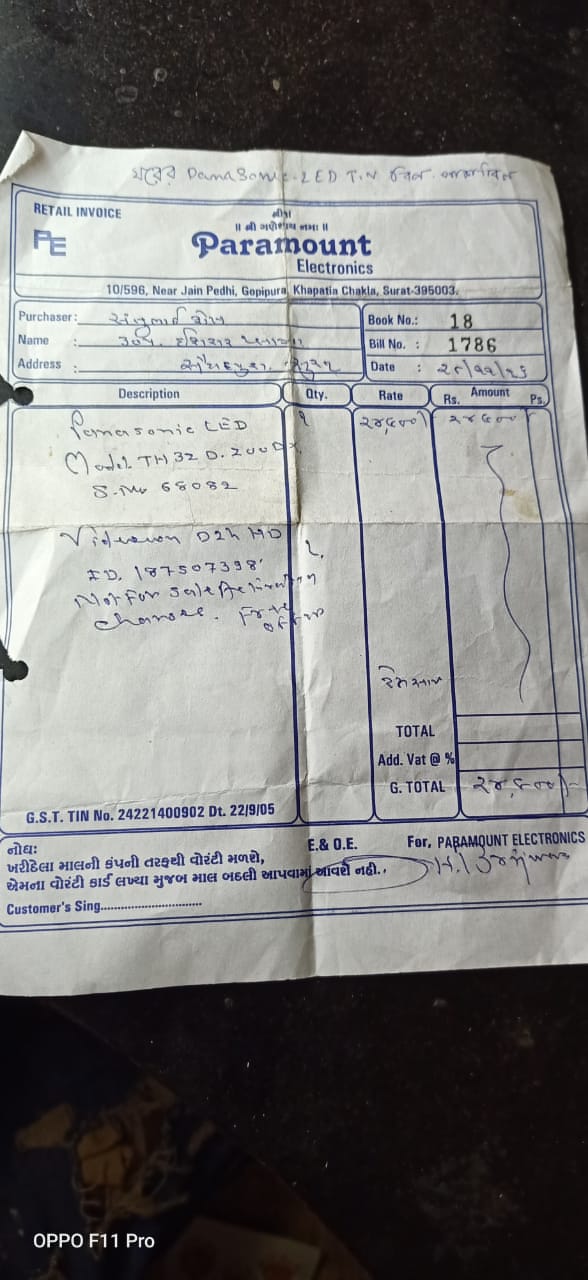 ঘরের Panasonic LED T.V
RETAIL INVOICE
શ્રી૧ા
॥ શ્રી ગણેશાય નમઃ ॥
PE
Paramount
Electronics
10/596, Near Jain Pedhi, Gopipura, Khapatia Chakla, Surat-395003.
Purchaser :
Name :
Address : સુરત
Book No.: 18
Bill No. : 1786
Date :
Description Qty. Rate Amount
Rs. Ps.
Panasonic LED ૧ ૨૪,૬૦૦/ ૨૪૬૦૦/
Model TH 32 D.200DX
S.No 68082
Videocon D2h HD ૧.
ID. 187507398
Not for Sale
Charge. Free
offer
TOTAL
Add. Vat @ %
G. TOTAL ૨૪,૬૦૦/-
G.S.T. TIN No. 24221400902 Dt. 22/9/05
નોંધ: E.& O.E. For, PARAMOUNT ELECTRONICS
ખરીદેલા માલની કંપની તરફથી વોરંટી મળશે,
એમના વોરંટી કાર્ડ લખ્યા મુજબ માલ બદલી આપવામાં આવશે નહી..
Customer's Sing..............................
OPPO F11 Pro